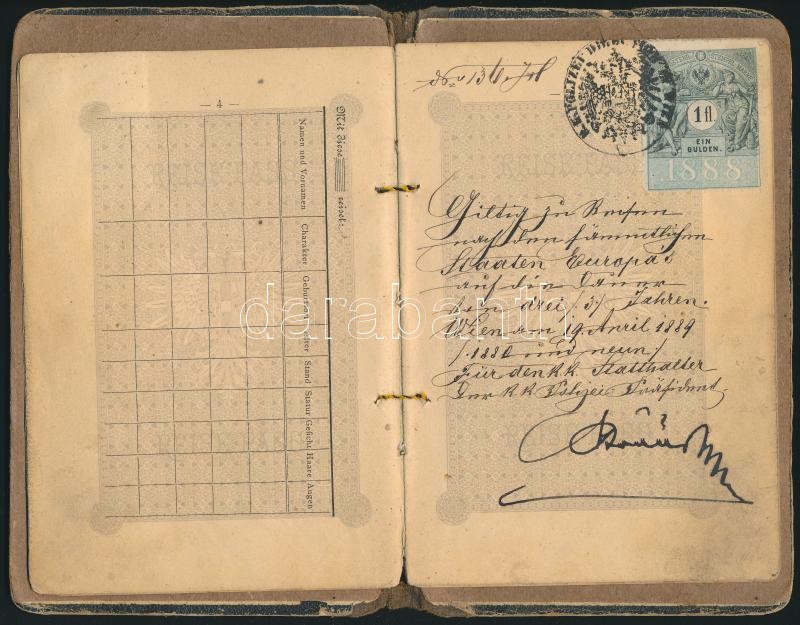 — 4 —
Mit Diese reiset:
Namen und Vornamen
Charakter
Geburtsort
Alter
Stand
Statur
Gesicht
Haare
Augen
1 fl
EIN
GULDEN.
1888
Giltig zu Reisen
nach den sämmtlichen
Staaten Europas
auf die Dauer
von drei /3/ Jahren.
Wien am 19 April 1889
/:1880 und neun:/
Für den k.k. Statthalter
Der k k Polizei-Präsident
darabanth